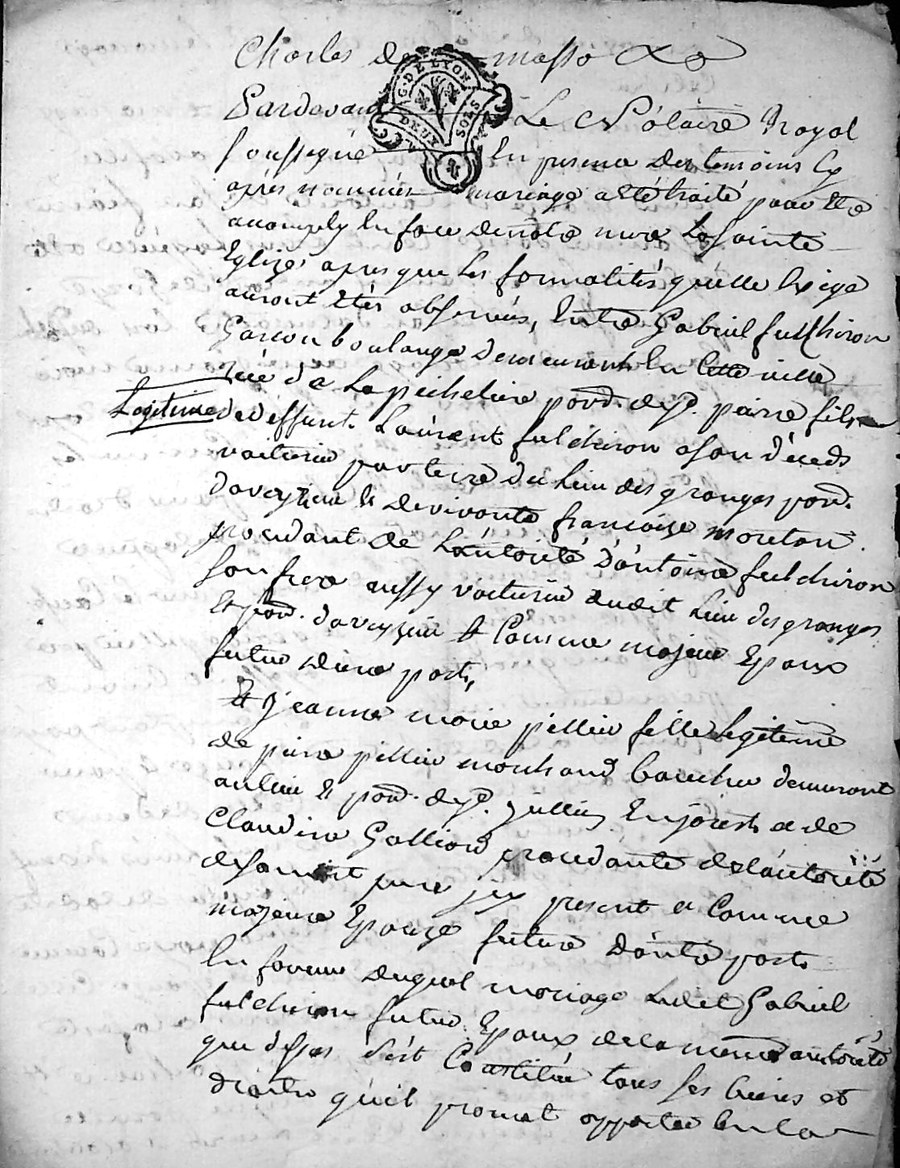 Charles de masso &c
G. DE LYON
DEUX SOLS
Pardevant Le Notaire Royal
soussigné En presence des temoins Cy
après nommés mariage a été traité pour être
accomply En face de nôtre mere La Sainte
Eglize, apres que Les formalités qu'elle Exige
auront étés observées, Entre Gabriel fulchiron
Garcon boulanger demeurant En Cette ville
rüe de La pecherie parr. de St. pierre fils
Legitime de deffunt Laurent fulchiron a son déceds
voiturier par terre du Lieu des granges parr.
daveyzieu & de vivante francoize moreton
procedant de L'autorité d'antoine fulchiron
son frere aussy voiturier audit Lieu des granges
& parr. daveyzieu & Comme majeur Epoux
futur d'une part,
Et jeanne marie pellin fille Legitime
de pierre pellin marchand boucher demeurant
au lieu & parr. de St. jullien En jarest & de
Claudine Galliard procedante de L'autorité
desondit pere jcy present & Comme
majeure Epouze future d'autre part
En faveur duquel mariage Ledit Gabriel
fulchiron futur Epoux de la meme autorité
que dessus s'est Constitüé tous ses biens et
droits qu'il promet apporter En La